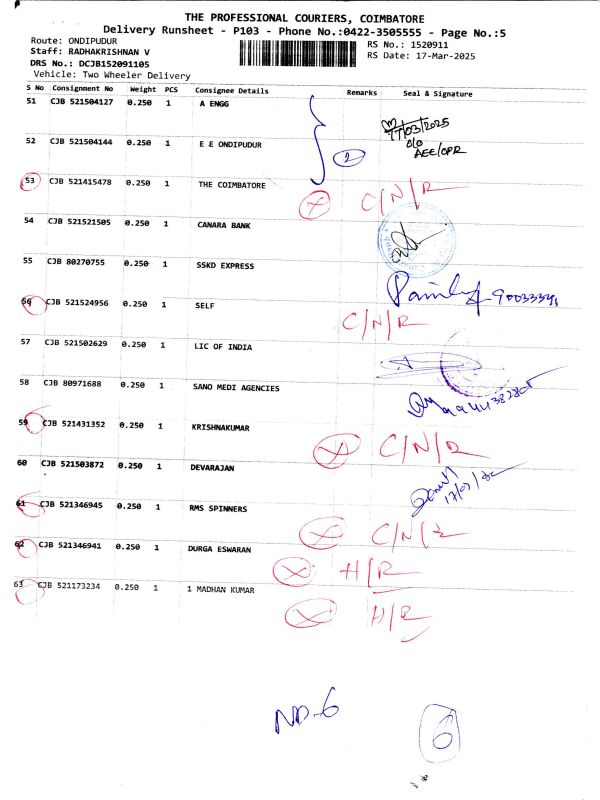 THE PROFESSIONAL COURIERS, COIMBATORE
Delivery Runsheet - P103 - Phone No.:0422-3505555 - Page No.:5
Route: ONDIPUDUR RS No.: 1520911
Staff: RADHAKRISHNAN V RS Date: 17-Mar-2025
DRS No.: DCJB152091105
Vehicle: Two Wheeler Delivery
S No Consignment No Weight PCS Consignee Details Remarks Seal & Signature
51 CJB 521504127 0.250 1 A ENGG
17/03/2025
AEE/OPR
52 CJB 521504144 0.250 1 E E ONDIPUDUR 2
53 CJB 521415478 0.250 1 THE COIMBATORE C/N/R
54 CJB 521521505 0.250 1 CANARA BANK
55 CJB 80270755 0.250 1 SSKD EXPRESS
56 CJB 521524956 0.250 1 SELF C/N/R
57 CJB 521502629 0.250 1 LIC OF INDIA
58 CJB 80971688 0.250 1 SANO MEDI AGENCIES
59 CJB 521431352 0.250 1 KRISHNAKUMAR C/N/R
60 CJB 521503872 0.250 1 DEVARAJAN
61 CJB 521346945 0.250 1 RMS SPINNERS C/N/R
62 CJB 521346941 0.250 1 DURGA ESWARAN H/R
63 CJB 521173234 0.250 1 1 MADHAN KUMAR H/R
ND-6